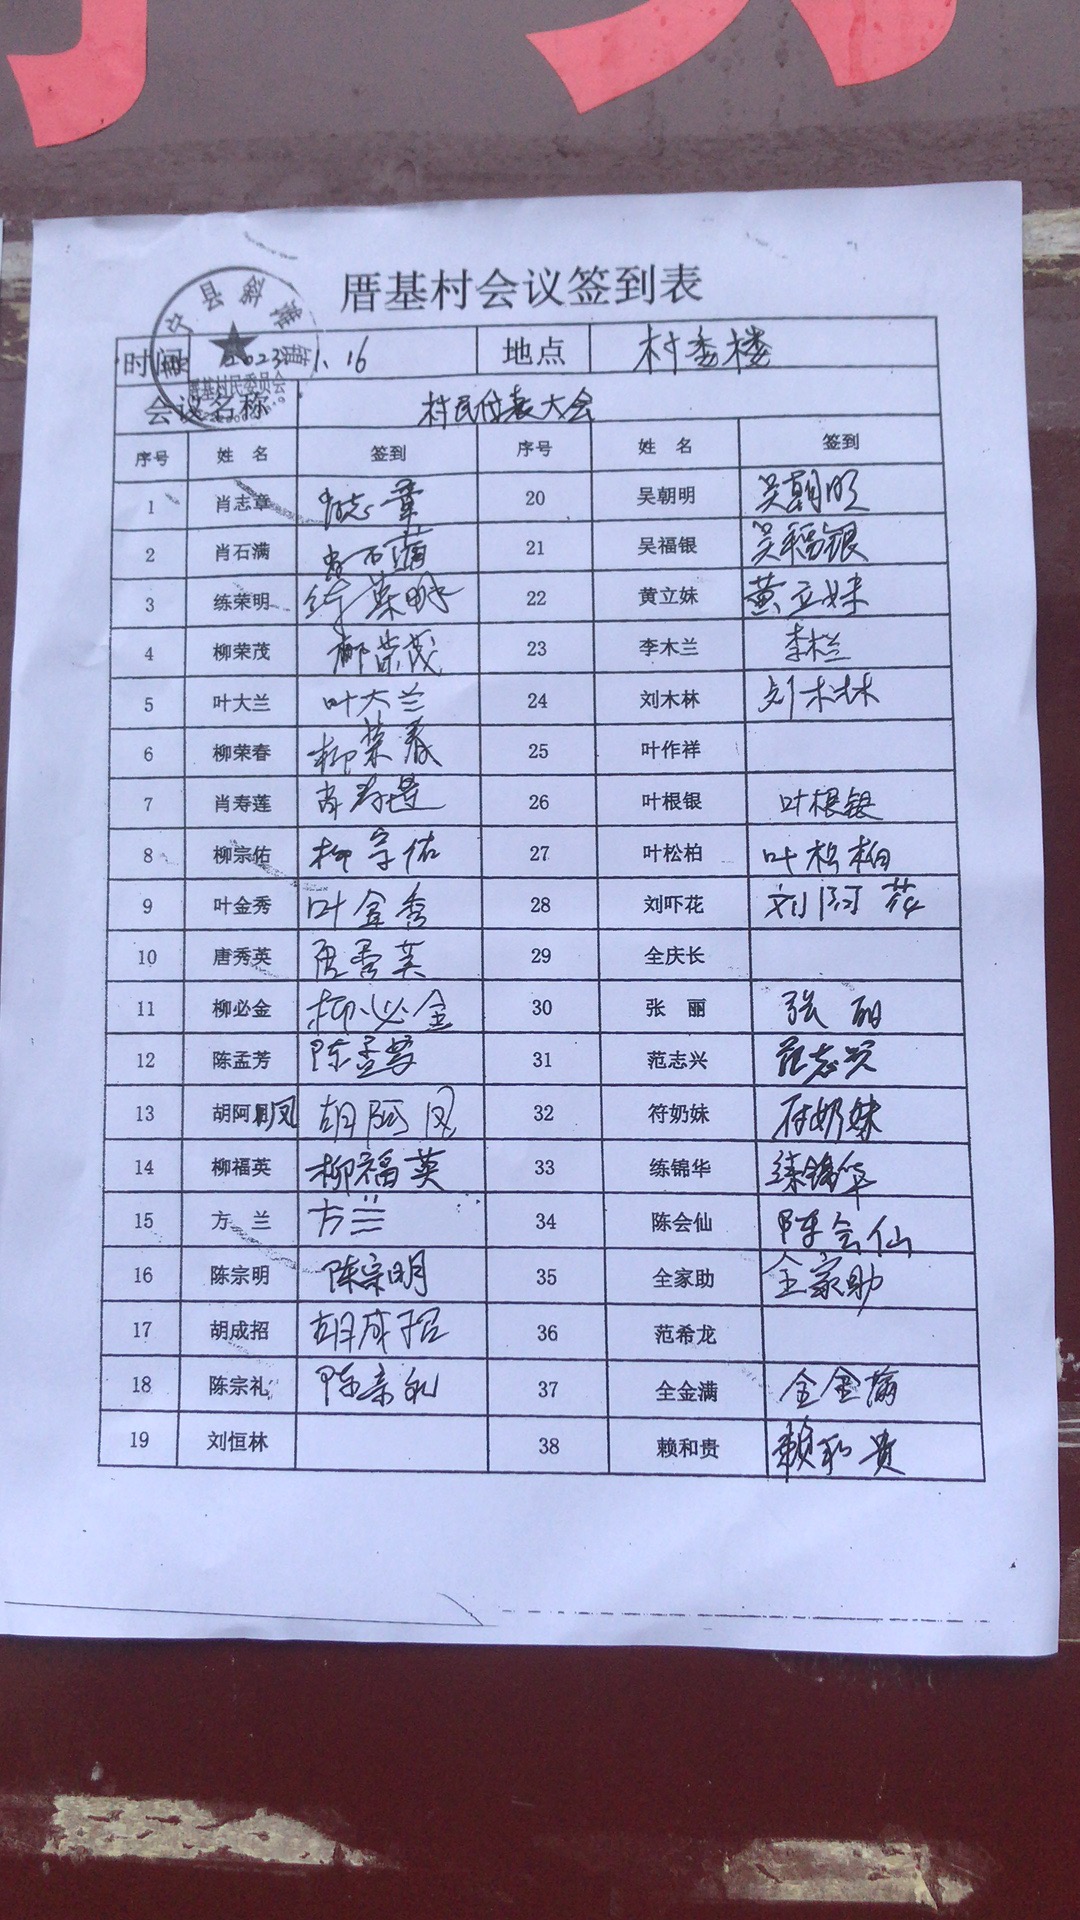 厝基村会议签到表
县斜滩镇
厝基村民委员会
时间 2023.1.16 地点 村委楼
会议名称 村民代表大会
序号 姓名 签到 序号 姓名 签到
1 肖志章 肖志章 20 吴朝明 吴朝明
2 肖石满 肖石满 21 吴福银 吴福银
3 练荣明 练荣明 22 黄立妹 黄立妹
4 柳荣茂 柳荣茂 23 李木兰 李木兰
5 叶大兰 叶大兰 24 刘木林 刘木林
6 柳荣春 柳荣春 25 叶作祥
7 肖寿莲 肖寿莲 26 叶根银 叶根银
8 柳宗佑 柳宗佑 27 叶松柏 叶松柏
9 叶金秀 叶金秀 28 刘吓花 刘阿花
10 唐秀英 唐秀英 29 全庆长
11 柳必金 柳必金 30 张丽 张丽
12 陈孟芳 陈孟芳 31 范志兴 范志兴
13 胡阿凤 胡阿凤 32 符奶妹 符奶妹
14 柳福英 柳福英 33 练锦华 练锦华
15 方兰 方兰 34 陈会仙 陈会仙
16 陈宗明 陈宗明 35 全家助 全家助
17 胡成招 胡成招 36 范希龙
18 陈宗礼 陈宗礼 37 全金满 全金满
19 刘恒林 38 赖和贵 赖和贵